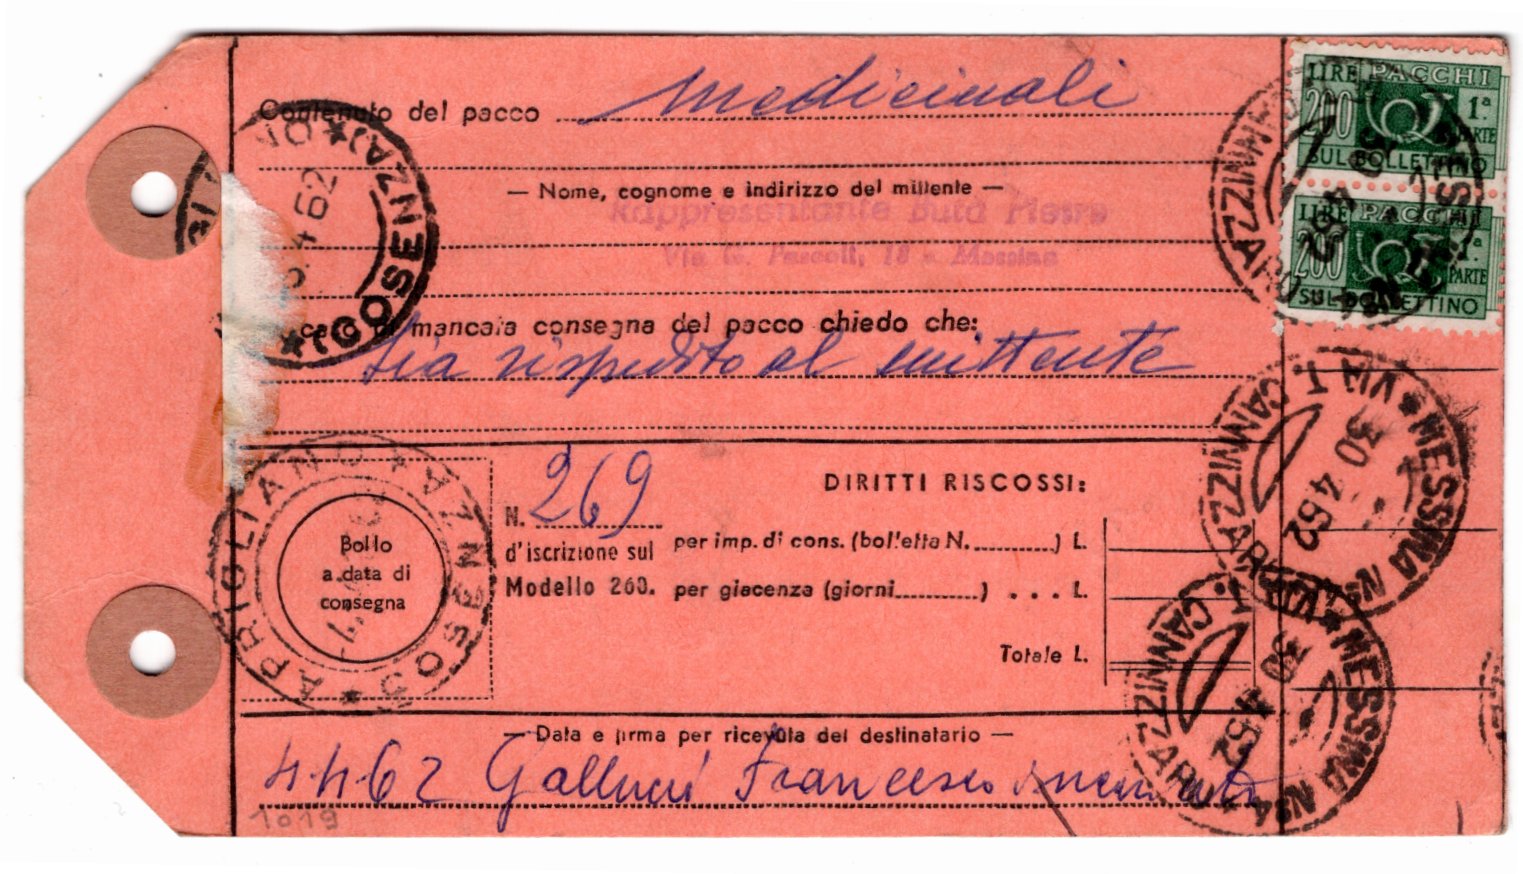 Contenuto del pacco medicinali
— Nome, cognome e indirizzo del mittente —
Rappresentante Butà Pietro
Via G. Pascoli, 18 - Messina
caso di mancata consegna del pacco chiedo che:
sia rispedito al mittente
LIRE PACCHI
200 1ª PARTE
SUL BOLLETTINO
LIRE PACCHI
200 1ª PARTE
SUL BOLLETTINO
(COSENZA)
4 62
MESSINA N34 VIA T. CANNIZZARO
30 4 62
MESSINA N34 VIA T. CANNIZZARO
30 4 62
APRIGLIANO COSENZA
Bollo
a data di
consegna
N. 269
d'iscrizione sul
Modello 260.
DIRITTI RISCOSSI:
per imp. di cons. (bolletta N. ) L.
per giacenza (giorni ) . . . L.
Totale L.
— Data e firma per ricevuta del destinatario —
4 4 62 Gallucci Francesco
1019